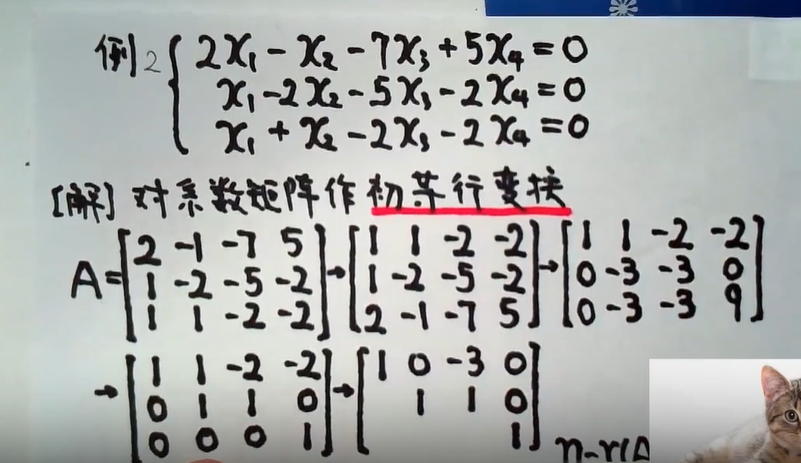 例2 { 2x₁ - x₂ - 7x₃ + 5x₄ = 0
x₁ - 2x₂ - 5x₃ - 2x₄ = 0
x₁ + x₂ - 2x₃ - 2x₄ = 0
[解] 对系数矩阵作初等行变换
A = [2 -1 -7 5; 1 -2 -5 -2; 1 1 -2 -2] → [1 1 -2 -2; 1 -2 -5 -2; 2 -1 -7 5] → [1 1 -2 -2; 0 -3 -3 0; 0 -3 -3 9]
→ [1 1 -2 -2; 0 1 1 0; 0 0 0 1] → [1 0 -3 0; 1 1 0; 1]
n-r(A